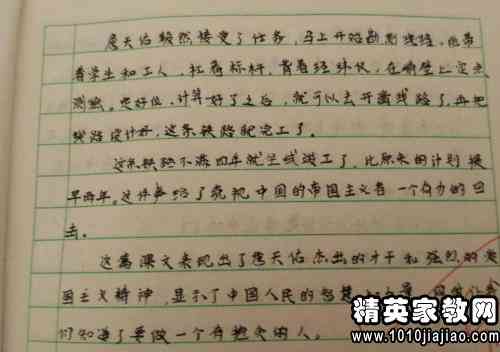 詹天佑毅然接受了任务，马上开始勘测线路，他带
着学生和工人，扛着标杆，背着经纬仪，在峭壁上定点
测绘。定好位，计算好了之后，就可以去开凿线路了，再把
线路设计好，这条铁路就完工了。
这条铁路不满四年就全线竣工了，比原来的计划提
早两年。这件事给了藐视中国的帝国主义者一个有力的回
击。
这篇课文表现出了詹天佑杰出的才干和强烈的爱
国主义精神，显示了中国人民的智慧
们知道了要做一个有抱负的人。
精英家教网
www.1010jiajiao.com